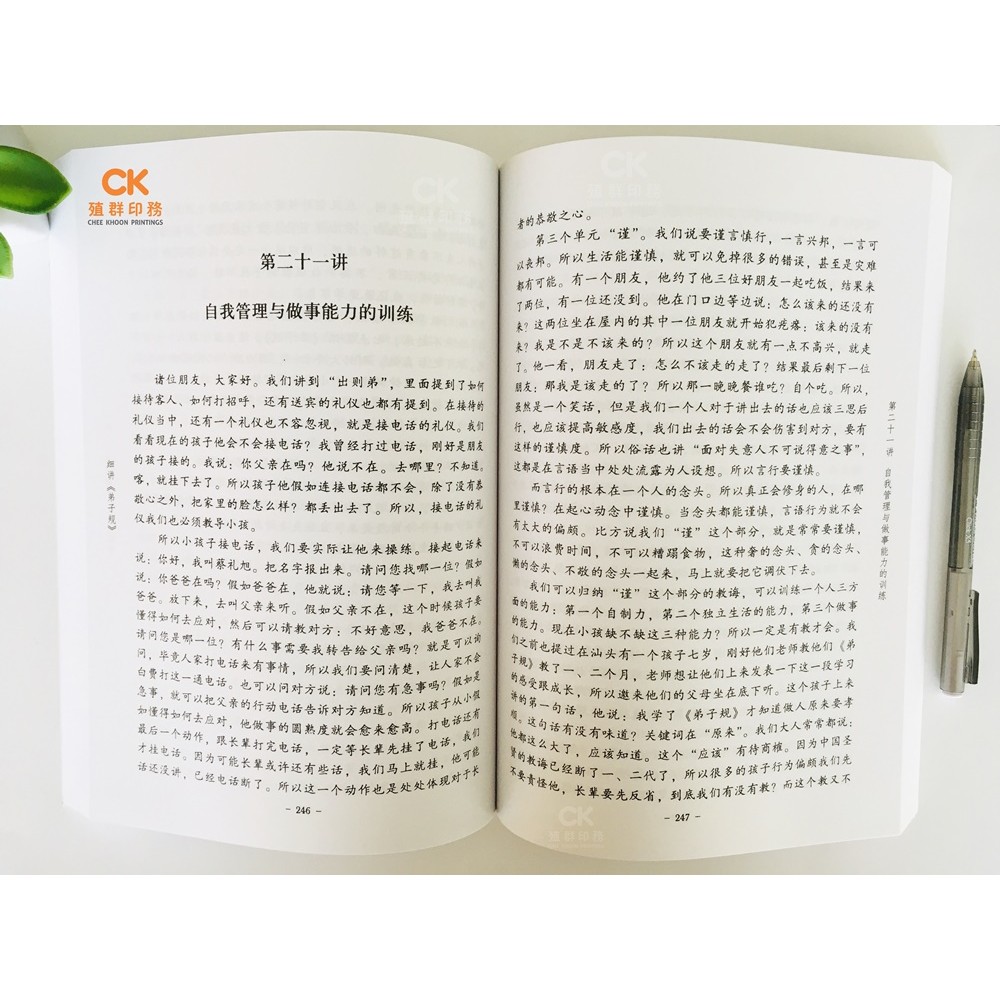 CK
殖群印務
CHEE KHOON PRINTINGS
第二十一讲
自我管理与做事能力的训练
诸位朋友，大家好。我们讲到“出则弟”，里面提到了如何
接待客人、如何打招呼，还有送宾的礼仪也都有提到。在接待的
礼仪当中，还有一个礼仪也不容忽视，就是接电话的礼仪。我们
看看现在的孩子他会不会接电话？我曾经打过电话，刚好是朋友
的孩子接的。我说：你父亲在吗？他说不在。去哪里？不知道。
喀，就挂下去了。所以孩子他假如连接电话都不会，除了没有恭
敬心之外，把家里的脸怎么样？都丢出去了。所以，接电话的礼
仪我们也必须教导小孩。
所以小孩子接电话，我们要实际让他来操练。接起电话来
说：你好，我叫蔡礼旭。把名字报出来。请问您找哪一位？假如
说：你爸爸在吗？假如爸爸在，他就说：请您等一下，我去叫我
爸爸。放下来，去叫父亲来听。假如父亲不在，这个时候孩子要
懂得如何去应对，然后可以请教对方：不好意思，我爸爸不在。
请问您是哪一位？有什么事需要我转告给父亲吗？就是可以询
问，毕竟人家打电话来有事情，所以我们要问清楚，让人家不会
白费打这一通电话。也可以问对方说：请问您有急事吗？假如是
急事，就可以把父亲的行动电话告诉对方知道。所以孩子从小假
如懂得如何去应对，他做事的圆熟度就会愈来愈高。打电话还有
最后一个动作，跟长辈打完电话，一定等长辈先挂了电话，我们
才挂电话。因为可能长辈或许还有些话，我们马上就挂，他可能
话还没讲，已经电话断了。所以这一个动作也是处处体现对于长
细讲《弟子规》
- 246 -
CK
CK
殖群印務
者的恭敬之心。
第三个单元“谨”。我们说要谨言慎行，一言兴邦，一言可
以丧邦。所以生活能谨慎，就可以免掉很多的错误，甚至是灾难
都有可能。有一个朋友，他约了他三位好朋友一起吃饭，结果来
了两位，有一位还没到。他在门口边等边说：怎么该来的还没有
来？这两位坐在屋内的其中一位朋友就开始犯疙瘩：该来的没有
来？我是不是不该来的？所以这个朋友就有一点不高兴，就走
了。他一看，朋友走了：怎么不该走的走了？结果最后剩下一位
朋友：那我是该走的了？所以那一晚晚餐谁吃？自个吃。所以，
虽然是一个笑话，但是我们一个人对于讲出去的话也应该三思后
行，也应该提高敏感度，我们出去的话会不会伤害到对方，要有
这样的谨慎度。所以俗话也讲“面对失意人不可说得意之事”，
这都是在言语当中处处流露为人设想。所以言行要谨慎。
而言行的根本在一个人的念头。所以真正会修身的人，在哪
里谨慎？在起心动念中谨慎。当念头都能谨慎，言语行为就不会
有太大的偏颇。比方说我们“谨”这个部分，就是常常要谨慎，
不可以浪费时间，不可以糟蹋食物，这种奢的念头、贪的念头、
懒的念头、不敬的念头一起来，马上就要把它调伏下去。
我们可以归纳“谨”这个部分的教诲，可以训练一个人三方
面的能力：第一个自制力，第二个独立生活的能力，第三个做事
的能力。现在小孩缺不缺这三种能力？所以一定是有教才会。我
们之前也提过在汕头有一个孩子七岁，刚好他们老师教他们《弟
子规》教了一、二个月，老师想让他们上来发表一下这一段学习
的感受跟成长，所以邀来他们的父母坐在底下听。这个孩子上来
讲的第一句话，他说：我学了《弟子规》才知道做人原来要孝
顺。这句话有没有味道？关键词在“原来”。我们大人常常都说：
他都这么大了，应该知道。这个“应该”有待商榷。因为中国圣
贤的教诲已经断了一、二代了，所以很多的孩子行为偏颇我们先
不要责怪他，长辈要先反省，到底我们有没有教？而这个教又不
第二十一讲 自我管理与做事能力的训练
- 247 -
CK
殖群印務